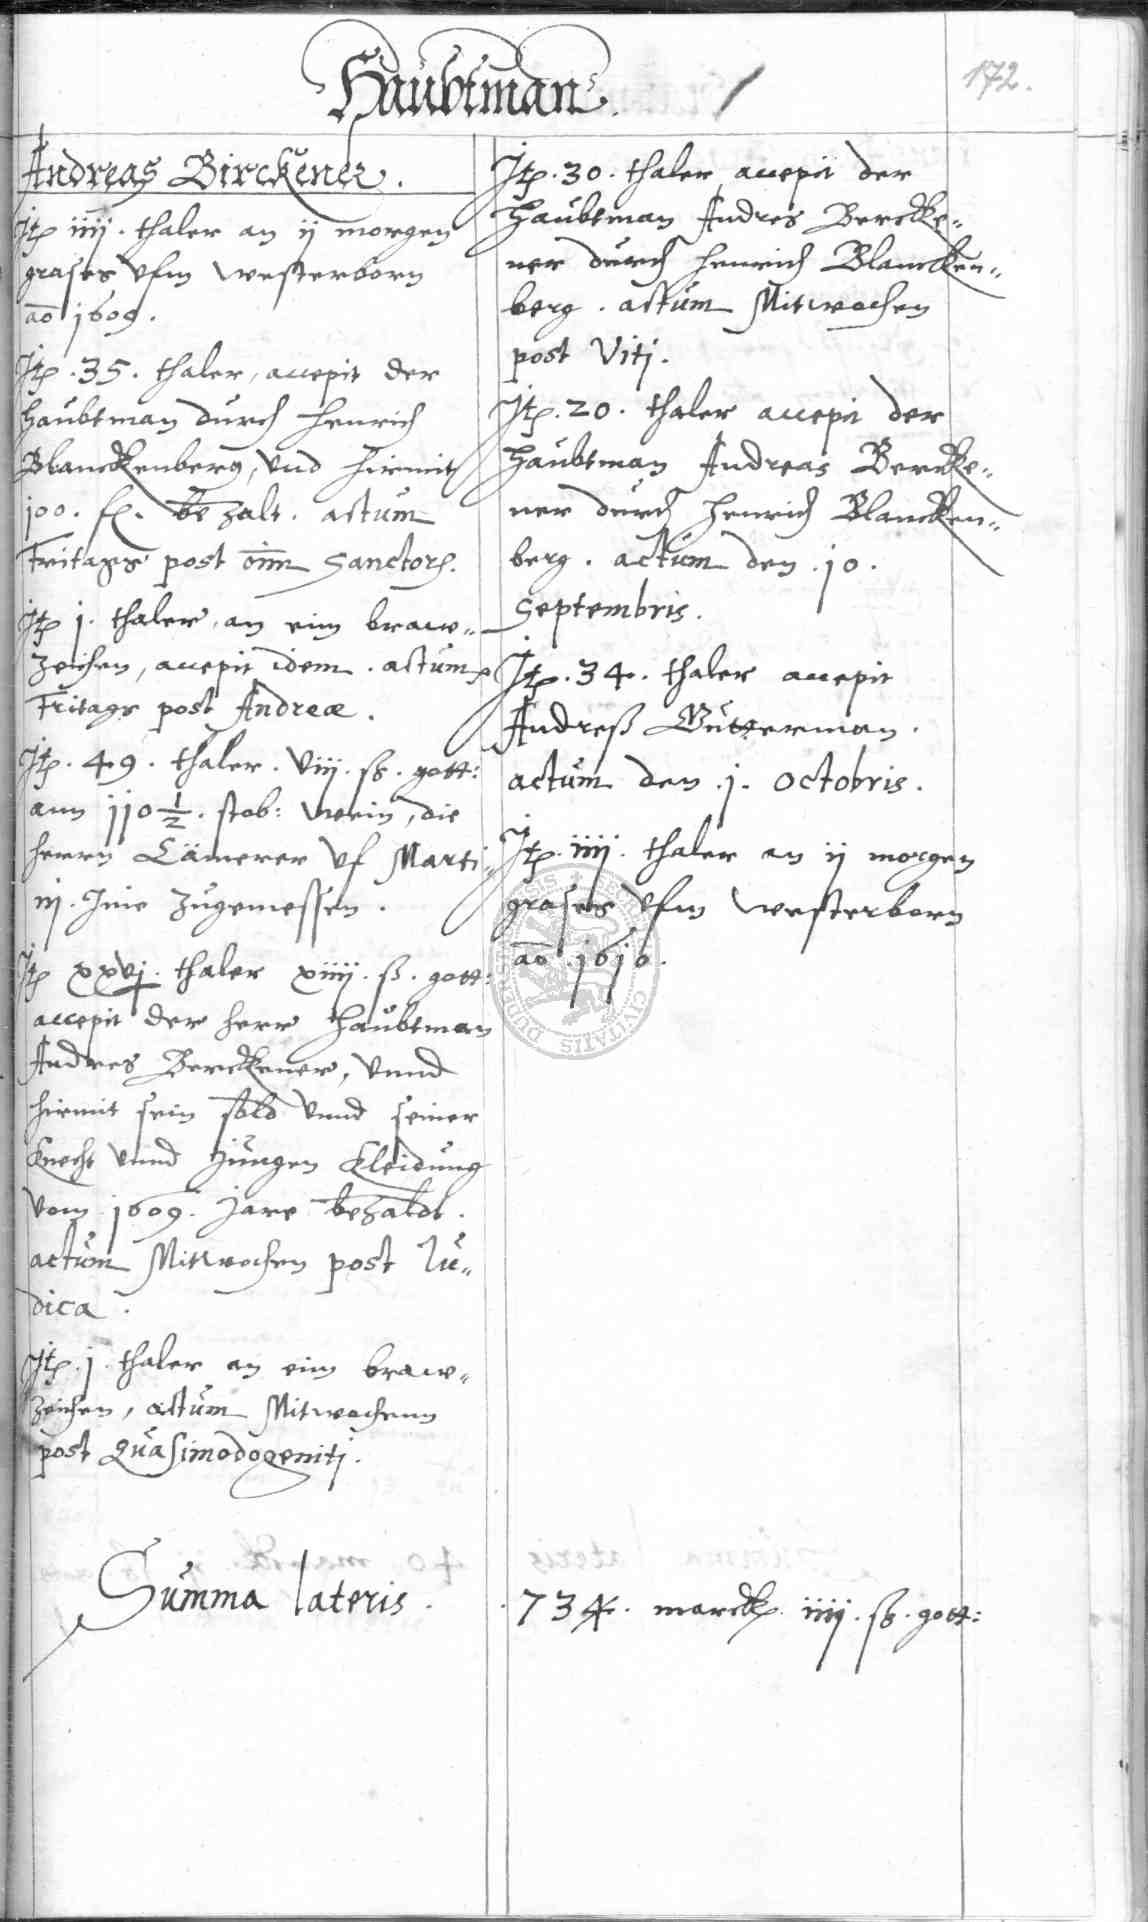 Haubtman.
172.
Andreas Birckener.
Itp iiij. thaler an ij morgen
grases vfm Westerborn
ao 1609.
Itp. 35. thaler, accepit der
Haubtman durch Henrich
Blanckenberg, vnd hirmit
100. fl. bezalt. actum
Fritags post oim Sanctor.
Itp j. thaler an eim braw-
zeichen, accepit idem. actum
Fritags post Andreæ.
Itp. 49. thaler. viij. ß. gott:
ann 110 1/2. stob: wein, die
Herrn Cämerer vf Marti-
nj. Ime zugemessen.
Itp xxvj. thaler xiiij. ß. gott:
accepit der Herr Haubtman
Andres Berckener, vnnd
hirmit sein sold vnnd seiner
Knecht vnnd Jungen Kleidung
vom 1609. Jare bezaldt.
actum Mittwochen post Iu-
dica.
Itp. j. thaler an eim braw-
zeichen, actum Mitwochenn
post Quasimodogenitj.
Itp. 30. thaler accepit der
Haubtman Andres Bercke-
ner durch Henrich Blancken-
berg. actum Mitwochen
post Vitj.
Itp. 20. thaler accepit der
Haubtman Andreas Bercke-
ner durch Henrich Blancken-
berg. actum den .10.
Septembris.
Itp. 34. thaler accepit
Andreß Gutterman.
actum den .j. Octobris.
Itp. iiij. thaler an ij morgen
grases vfm Westerborn
ao .1610.
Summa lateris. 734. marck. iiij. ß. gott: